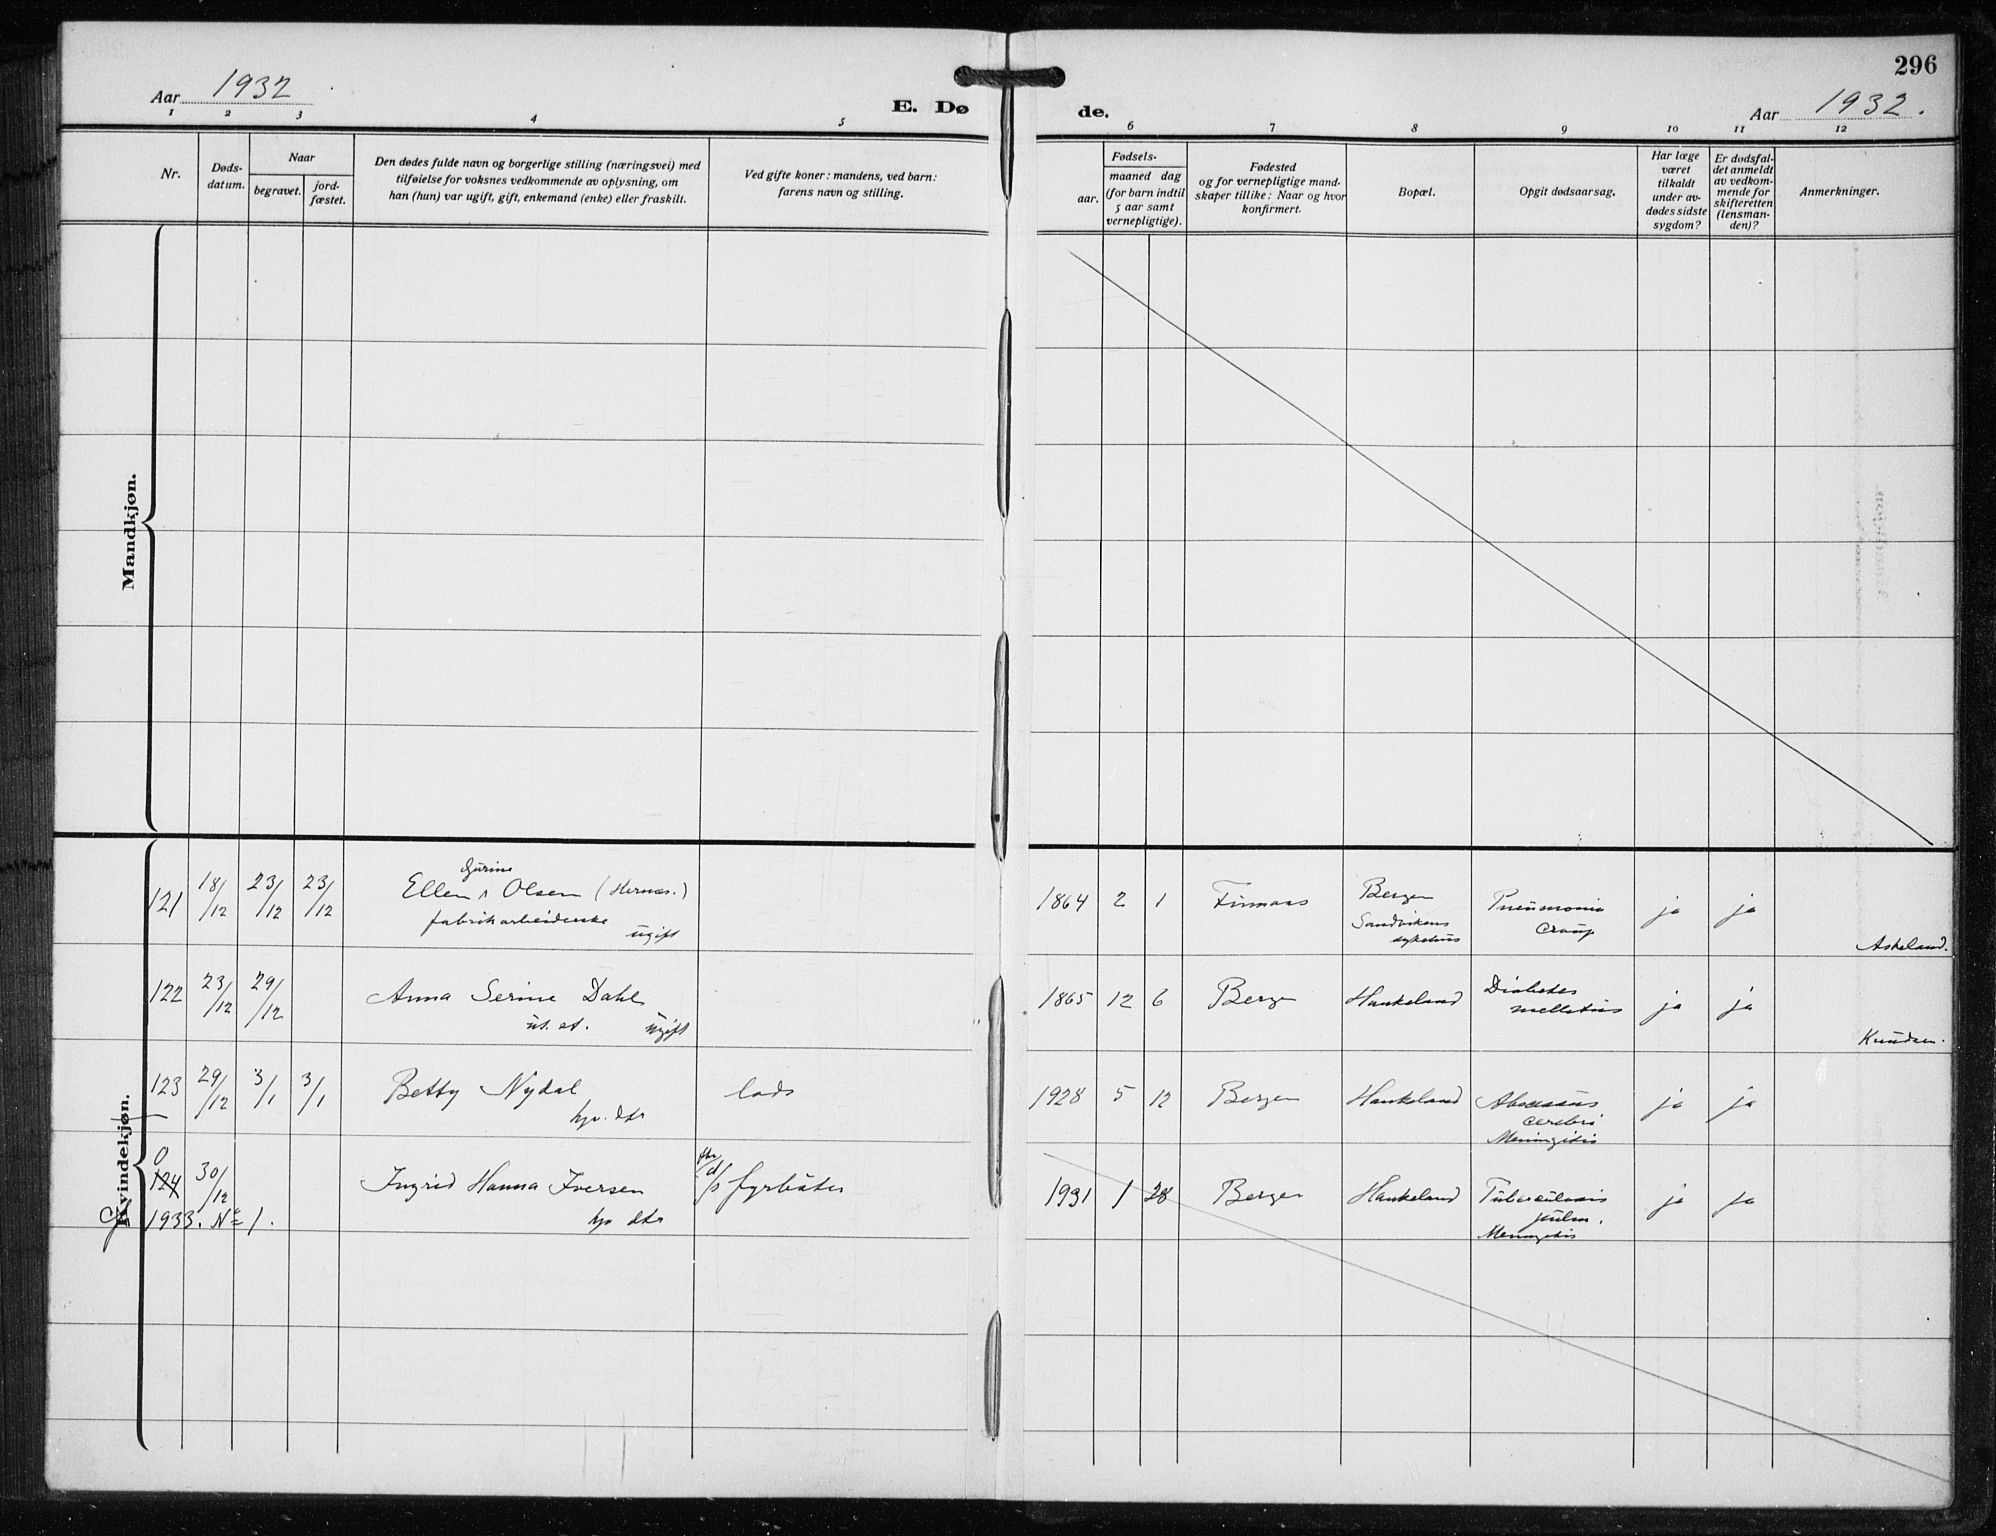 296
Aar 1932
E. Dø de.
Aar 1932.
1 2 3 4 5 6 7 8 9 10 11 12
Nr.
Døds-
datum.
Naar
begravet.
jord-
fæstet.
Den dødes fulde navn og borgerlige stilling (næringsvei) med
tilføielse for voksnes vedkommende av oplysning, om
han (hun) var ugift, gift, enkemand (enke) eller fraskilt.
Ved gifte koner: mandens, ved barn:
farens navn og stilling.
Fødsels-
aar.
maaned dag
(for barn indtil
5 aar samt
vernepligtige).
Fødested
og for vernepligtige mand-
skaper tillike: Naar og hvor
konfirmert.
Bopæl.
Opgit dødsaarsag.
Har læge
været
tilkaldt
under av-
dødes sidste
sygdom?
Er dødsfal-
det anmeldt
av vedkom-
mende for
skifteretten
(lensman-
den)?
Anmerkninger.
Mandkjøn.
Kvindekjøn.
121 18/12 23/12 23/12 Ellen Gurine Olsen (Hernæs.) 1864 2 1 Bergen Pneumonia ja ja
fabrikarbeiderske Sandvikens Croup
ugift sykehus Askeland.
122 23/12 29/12 Anna Serine Dahl 1865 12 6 Bergen Haukeland Diabetes ja ja
u. st. ugift mellitus
Knudsen.
123 29/12 3/1 3/1 Betty Nydal lods 1928 5 12 Bergen Haukeland Abscessus ja ja
hjv. dtr cerebri
Meningitis
0
124 30/12 Ingrid Hanna Iversen d/s fyrbøter 1931 1 28 Bergen Haukeland Tuberculosis ja ja
1933. № 1. hjv dtr pulm.
Meningitis